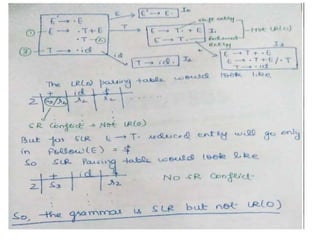 E' → ·E
① E → ·T+E
·T — ②
③ T → ·id
E
E' → E·
I₁
T
shift entry
E → T·+E
E → T·
I₂
reduced entry
Not LR(0)
id
T → id·
I₃
E → T+·E
E → ·T+E/·T
T → ·id
The LR(0) parsing table would look like
+ id $
2 S₃/r₂ r₂ r₂
SR Conflict → Not LR(0)
But for SLR E → T· reduced entry will go only
in Follow(E) = $
So SLR Parsing table would look like
+ id $
2 S₃ r₂
No SR Conflict.
So, the grammar is SLR but not LR(0)